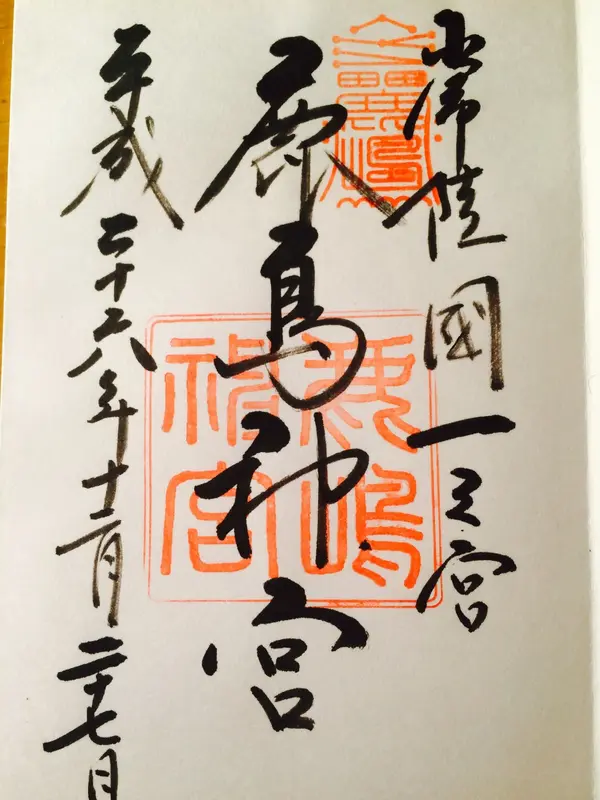 常陸國一之宮
鹿島神宮
鹿嶋
神宮
平成二十六年十二月二十七日